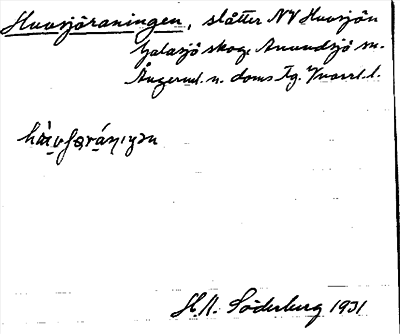 Huvsjöraningen, slåtter NV Huvsjön
Galasjö skog, Anundsjö sn.
Ångerml. n. doms. Tg. Vnorrl. l.
H. A. Söderberg 1931